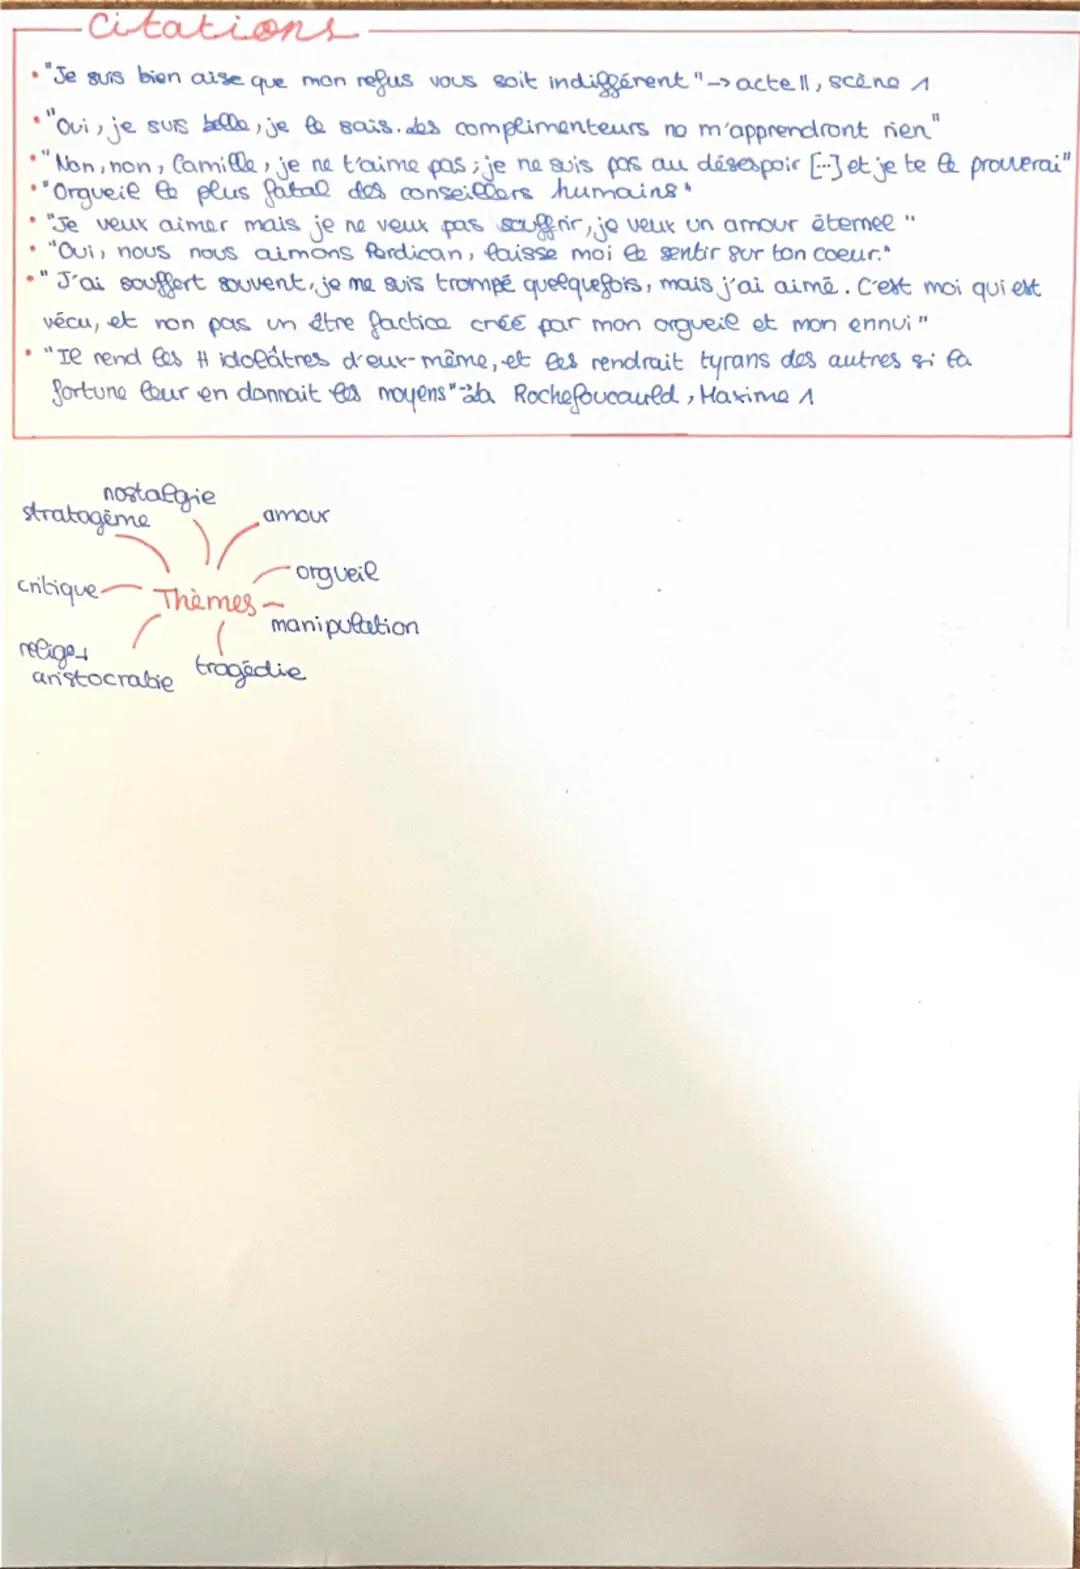 Citations
• "Je suis bien aise que mon refus vous soit indifférent" -> acte II, scène 1
• "Oui, je suis belle, je le sais. les complimenteurs ne m'apprendront rien"
• "Non, non, Camille, je ne t'aime pas ; je ne suis pas au désespoir [...] et je te le prouverai"
• "Orgueil le plus fatal des conseillers humains"
• "Je veux aimer mais je ne veux pas souffrir, je veux un amour éternel"
• "Oui, nous nous aimons Perdican, laisse moi le sentir sur ton coeur."
• "J'ai souffert souvent, je me suis trompé quelquefois, mais j'ai aimé. C'est moi qui est
vécu, et non pas un être factice créé par mon orgueil et mon ennui"
• "Il rend les H idolâtres d'eux-même, et les rendrait tyrans des autres si la
fortune leur en donnait les moyens" -> la Rochefoucauld, Maxime 1
nostalgie
stratagème
amour
orgueil
critique
Thèmes
manipulation
aristocratie
tragédie